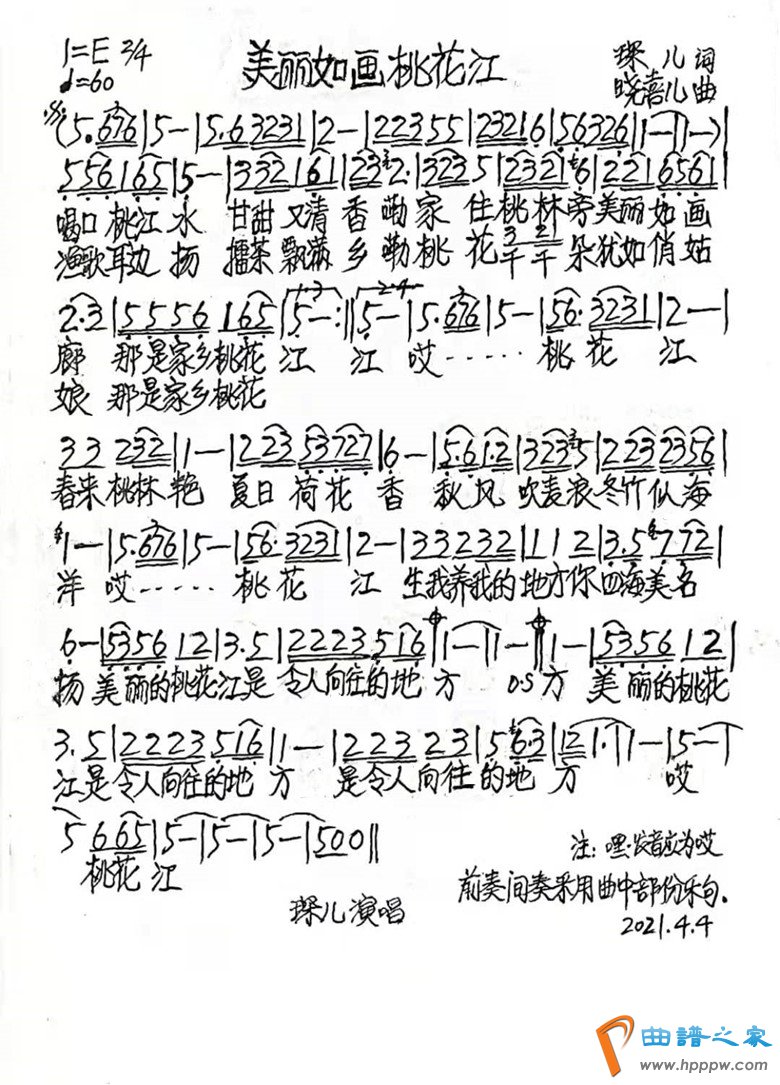 1=E 2/4
♩=60
美丽如画桃花江
琛儿词
晓喜儿曲
(5.676|5—|5.63231|2—|22355|23216|56326|1—|1—)|
556165|5—|332161|232.|3235|2321|6|2216561|
喝口桃江水 甘甜又清香嘞家住桃林旁美丽如画
渔歌耳边扬 擂茶飘满乡嘞桃花千千朵犹如俏姑
2.3|5556 165|5—:‖5—|5.676|5—|56.3231|2—|
廊 那是家乡桃花江 江 哎……桃花江
娘 那是家乡桃花
33 232|1—|223 53727|6—|5.61.2|3235|2232356|
春来桃林艳 夏日荷花香 秋风吹麦浪冬竹似海
1—|5.676|5—|56.3231|2—|33232|112|3.5 772|
洋 哎……桃花江 生我养我的地方你四海美名
6—|5356 12|3.5|2223516|1—|1—‖1—|5356 12|
扬 美丽的桃花江是令人向往的地方 DS方 美丽的桃花
3.5|2223516|1—|223 23|56.3|21.|1—|5—|
江是令人向往的地方 是令人向往的地方 哎
5 665|5—|5—|5—|500‖
桃花江
注:嘿·发音应为哎
前奏间奏采用曲中部份乐句.
琛儿演唱
2021.4.4
曲谱之家
www.hpppw.com